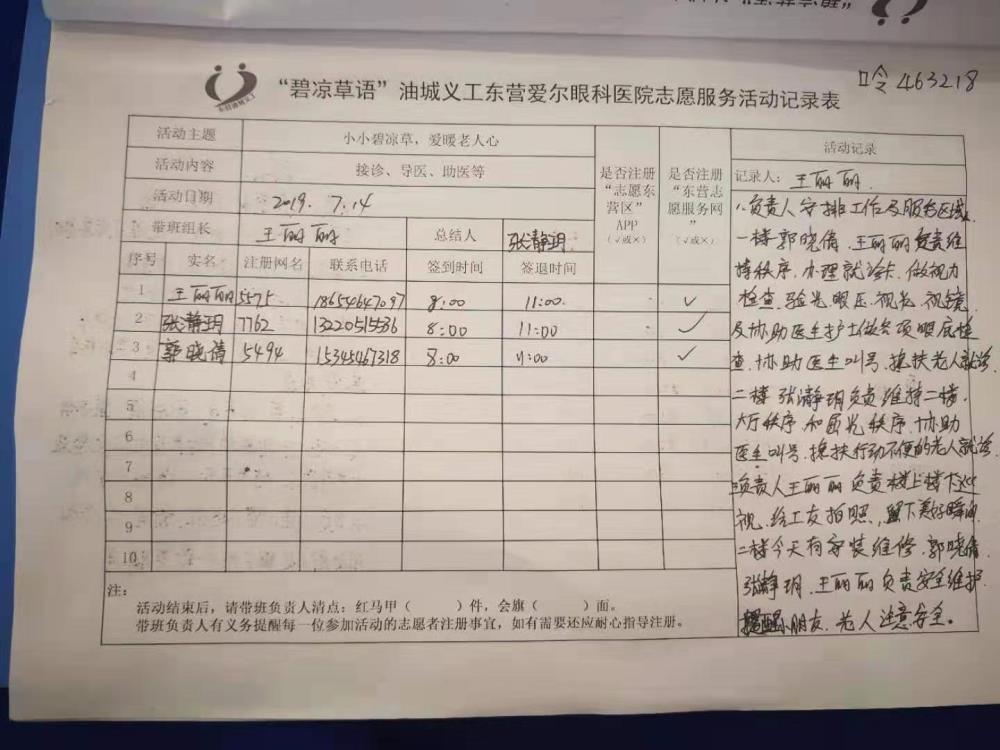 464218
“碧凉草语”油城义工东营爱尔眼科医院志愿服务活动记录表
活动主题 小小碧凉草，爱暖老人心
活动内容 接诊、导医、助医等
活动日期 2019. 7.14
带班组长 王丽丽 总结人 张静玥
是否注册“志愿东营区”APP（√或×）
是否注册“东营志愿服务网”（√或×）
序号 实名 注册网名 联系电话 签到时间 签退时间
1 王丽丽 5575 18654647097 8:00 11:00 ✓
2 张静玥 7762 13220515536 8:00 11:00 ✓
3 郭晓倩 5494 15345467318 8:00 11:00 ✓
4
5
6
7
8
9
10
注：
活动结束后，请带班负责人清点：红马甲（ ）件，会旗（ ）面。
带班负责人有义务提醒每一位参加活动的志愿者注册事宜，如有需要还应耐心指导注册。
活动记录
记录人：王丽丽.
1.负责人安排工作及服务区域.
一楼郭晓倩.王丽丽负责维
持秩序.办理就诊卡.做视力
检查.验光.眼压.视光.视镜
及协助医生护士做各项眼底检
查.协助医生叫号.搀扶老人就诊
二楼 张静玥负责维持二楼.
大厅秩序.和 秩序.协助
医生叫号.搀扶行动不便的老人就诊
负责人王丽丽负责楼上楼下巡
视.给工友拍照,留下美好瞬间
二楼今天有安装维修.郭晓倩
张静玥.王丽丽负责安全维护
提醒小朋友.老人注意安全。